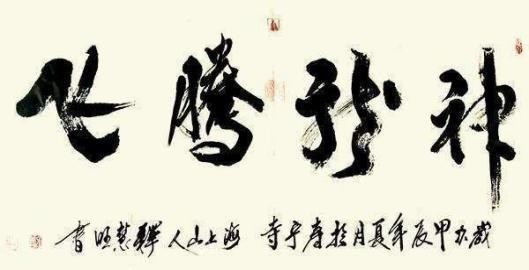 神龍騰飛
歲次甲辰年夏月於壽宁寺 海上山人釋慧旺書